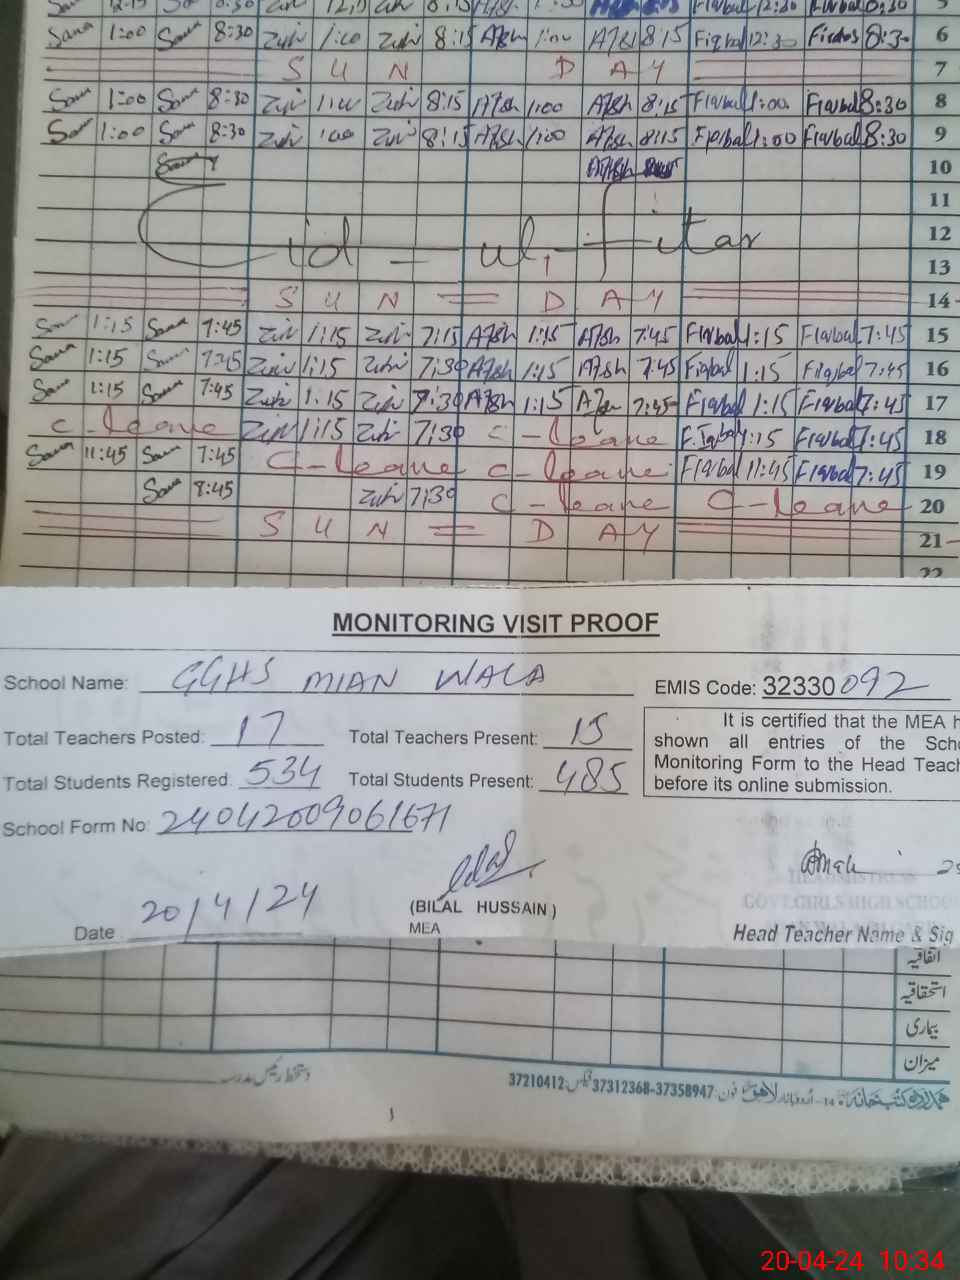 Sana 1:00 Sana 8:30 Zuh 1:00 Zuh 8:15 A78h 1:00 A78h 8:15 Fiqbal 12:30 8:30 6
S U N D A Y 7
Sana 1:00 Sana 8:30 Zuh 1:00 Zuh 8:15 A78h 1:00 A78h 8:15 Fiqbal 1:00 Fiqbal 8:30 8
Sana 1:00 Sana 8:30 Zuh 1:00 Zuh 8:15 A78h 1:00 A78h 8:15 Fiqbal 1:00 Fiqbal 8:30 9
Sana A78h 10
11
Eid - ul - fitar 12
13
S U N = D A Y 14
Sana 1:15 Sana 7:45 Zuh 1:15 Zuh 7:15 A78h 1:15 A78h 7:45 Fiqbal 1:15 Fiqbal 7:45 15
Sana 1:15 Sana 7:45 Zuh 1:15 Zuh 7:30 A78h 1:15 A78h 7:45 Fiqbal 1:15 Fiqbal 7:45 16
Sana 1:15 Sana 7:45 Zuh 1:15 Zuh 7:30 A78h 1:15 7:45 Fiqbal 1:15 Fiqbal 7:45 17
C - leave Zuh 1:15 Zuh 7:30 C - leave F.Iqbal 1:15 Fiqbal 7:45 18
Sana 11:45 Sana 7:45 C - leave C - leave Fiqbal 11:45 Fiqbal 7:45 19
Sana 8:45 Zuh 7:30 C - leave C - leave 20
S U N = D A Y 21
22
MONITORING VISIT PROOF
School Name: GGHS MIAN WALA EMIS Code: 32330092
Total Teachers Posted: 17 Total Teachers Present: 15
Total Students Registered: 534 Total Students Present: 485
It is certified that the MEA h
shown all entries of the Scho
Monitoring Form to the Head Teach
before its online submission.
School Form No: 24042009061671
HEADMISTRESS
GOVT.GIRLS HIGH SCHOOL
Date 20/4/24 (BILAL HUSSAIN)
MEA
Head Teacher Name & Sig
اتفاقیہ
استحقاقیہ
بیماری
میزان
دستخط رئیس مدرسہ
ہمدرد کتب خانہ 14-اردو بازار لاہور فون: 37358947-37312368 فیکس: 37210412
20-04-24 10:34